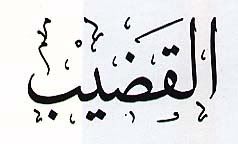 القضيب